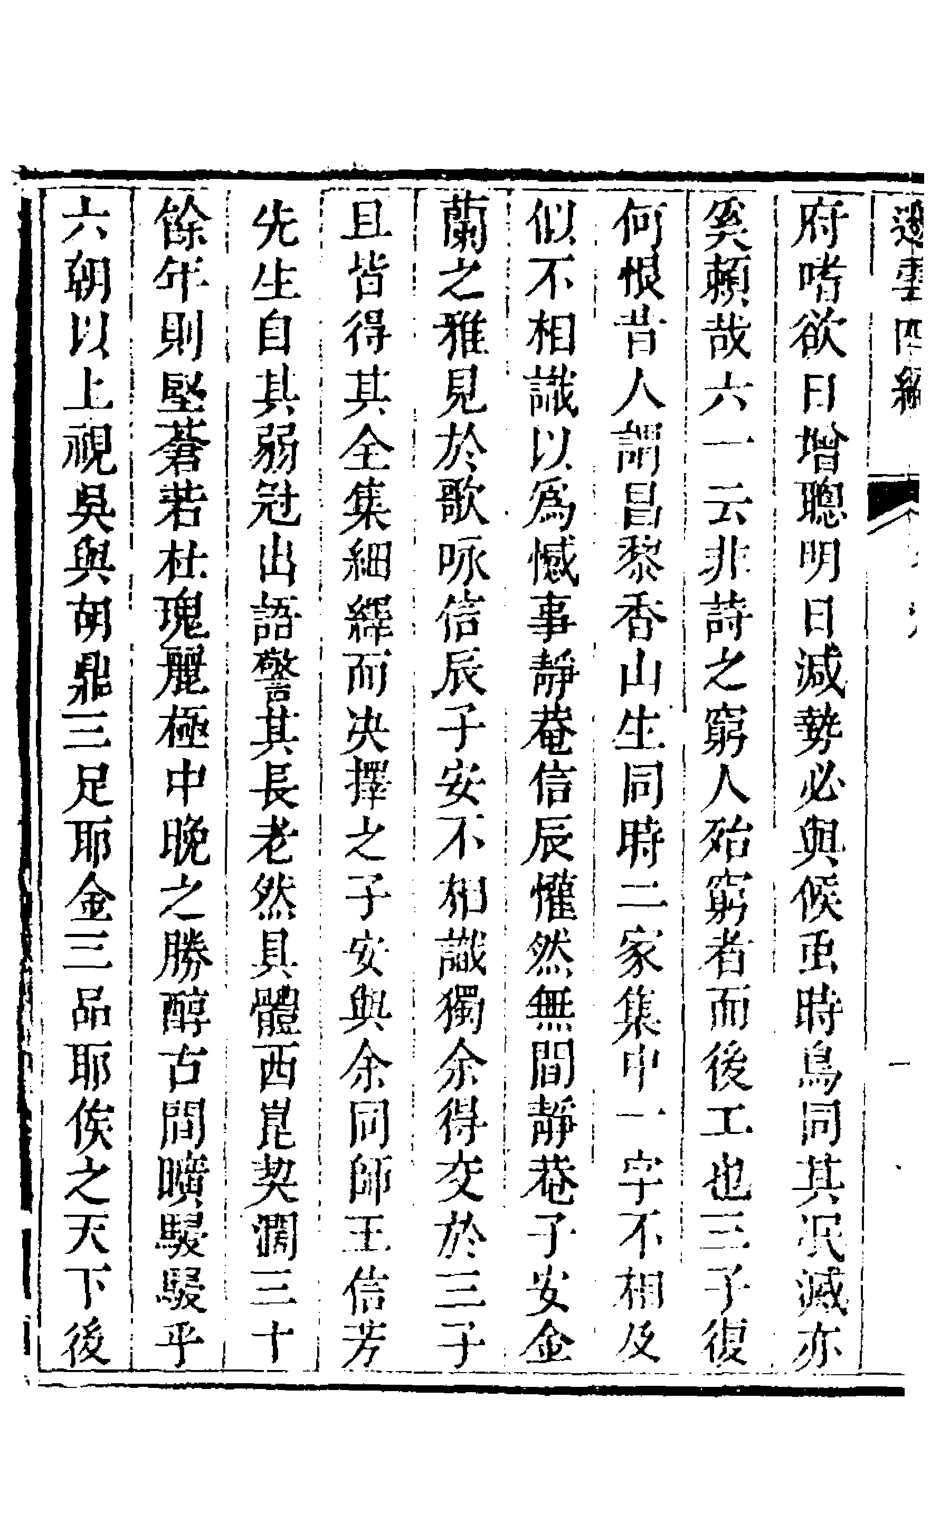 雲四編
府嗜欲日增聰明日减勢必與候䖝時鳥同其泯滅亦
奚賴哉六一云非詩之窮人殆窮者而後工也三子復
何恨昔人謂昌黎香山生同時二家集中一字不相及
似不相識以爲憾事靜菴信辰懽然無間靜菴子安金
蘭之雅見於歌咏信辰子安不相識獨余得交於三子
且皆得其全集細繹而决擇之子安與余同師王信芳
先生自其弱冠出語警其長老然具體西崑契濶三十
餘年則堅蒼若杜瑰麗極中晚之勝醇古間曠駸駸乎
六朝以上視吳與胡鼎三足耶金三品耶俟之天下後